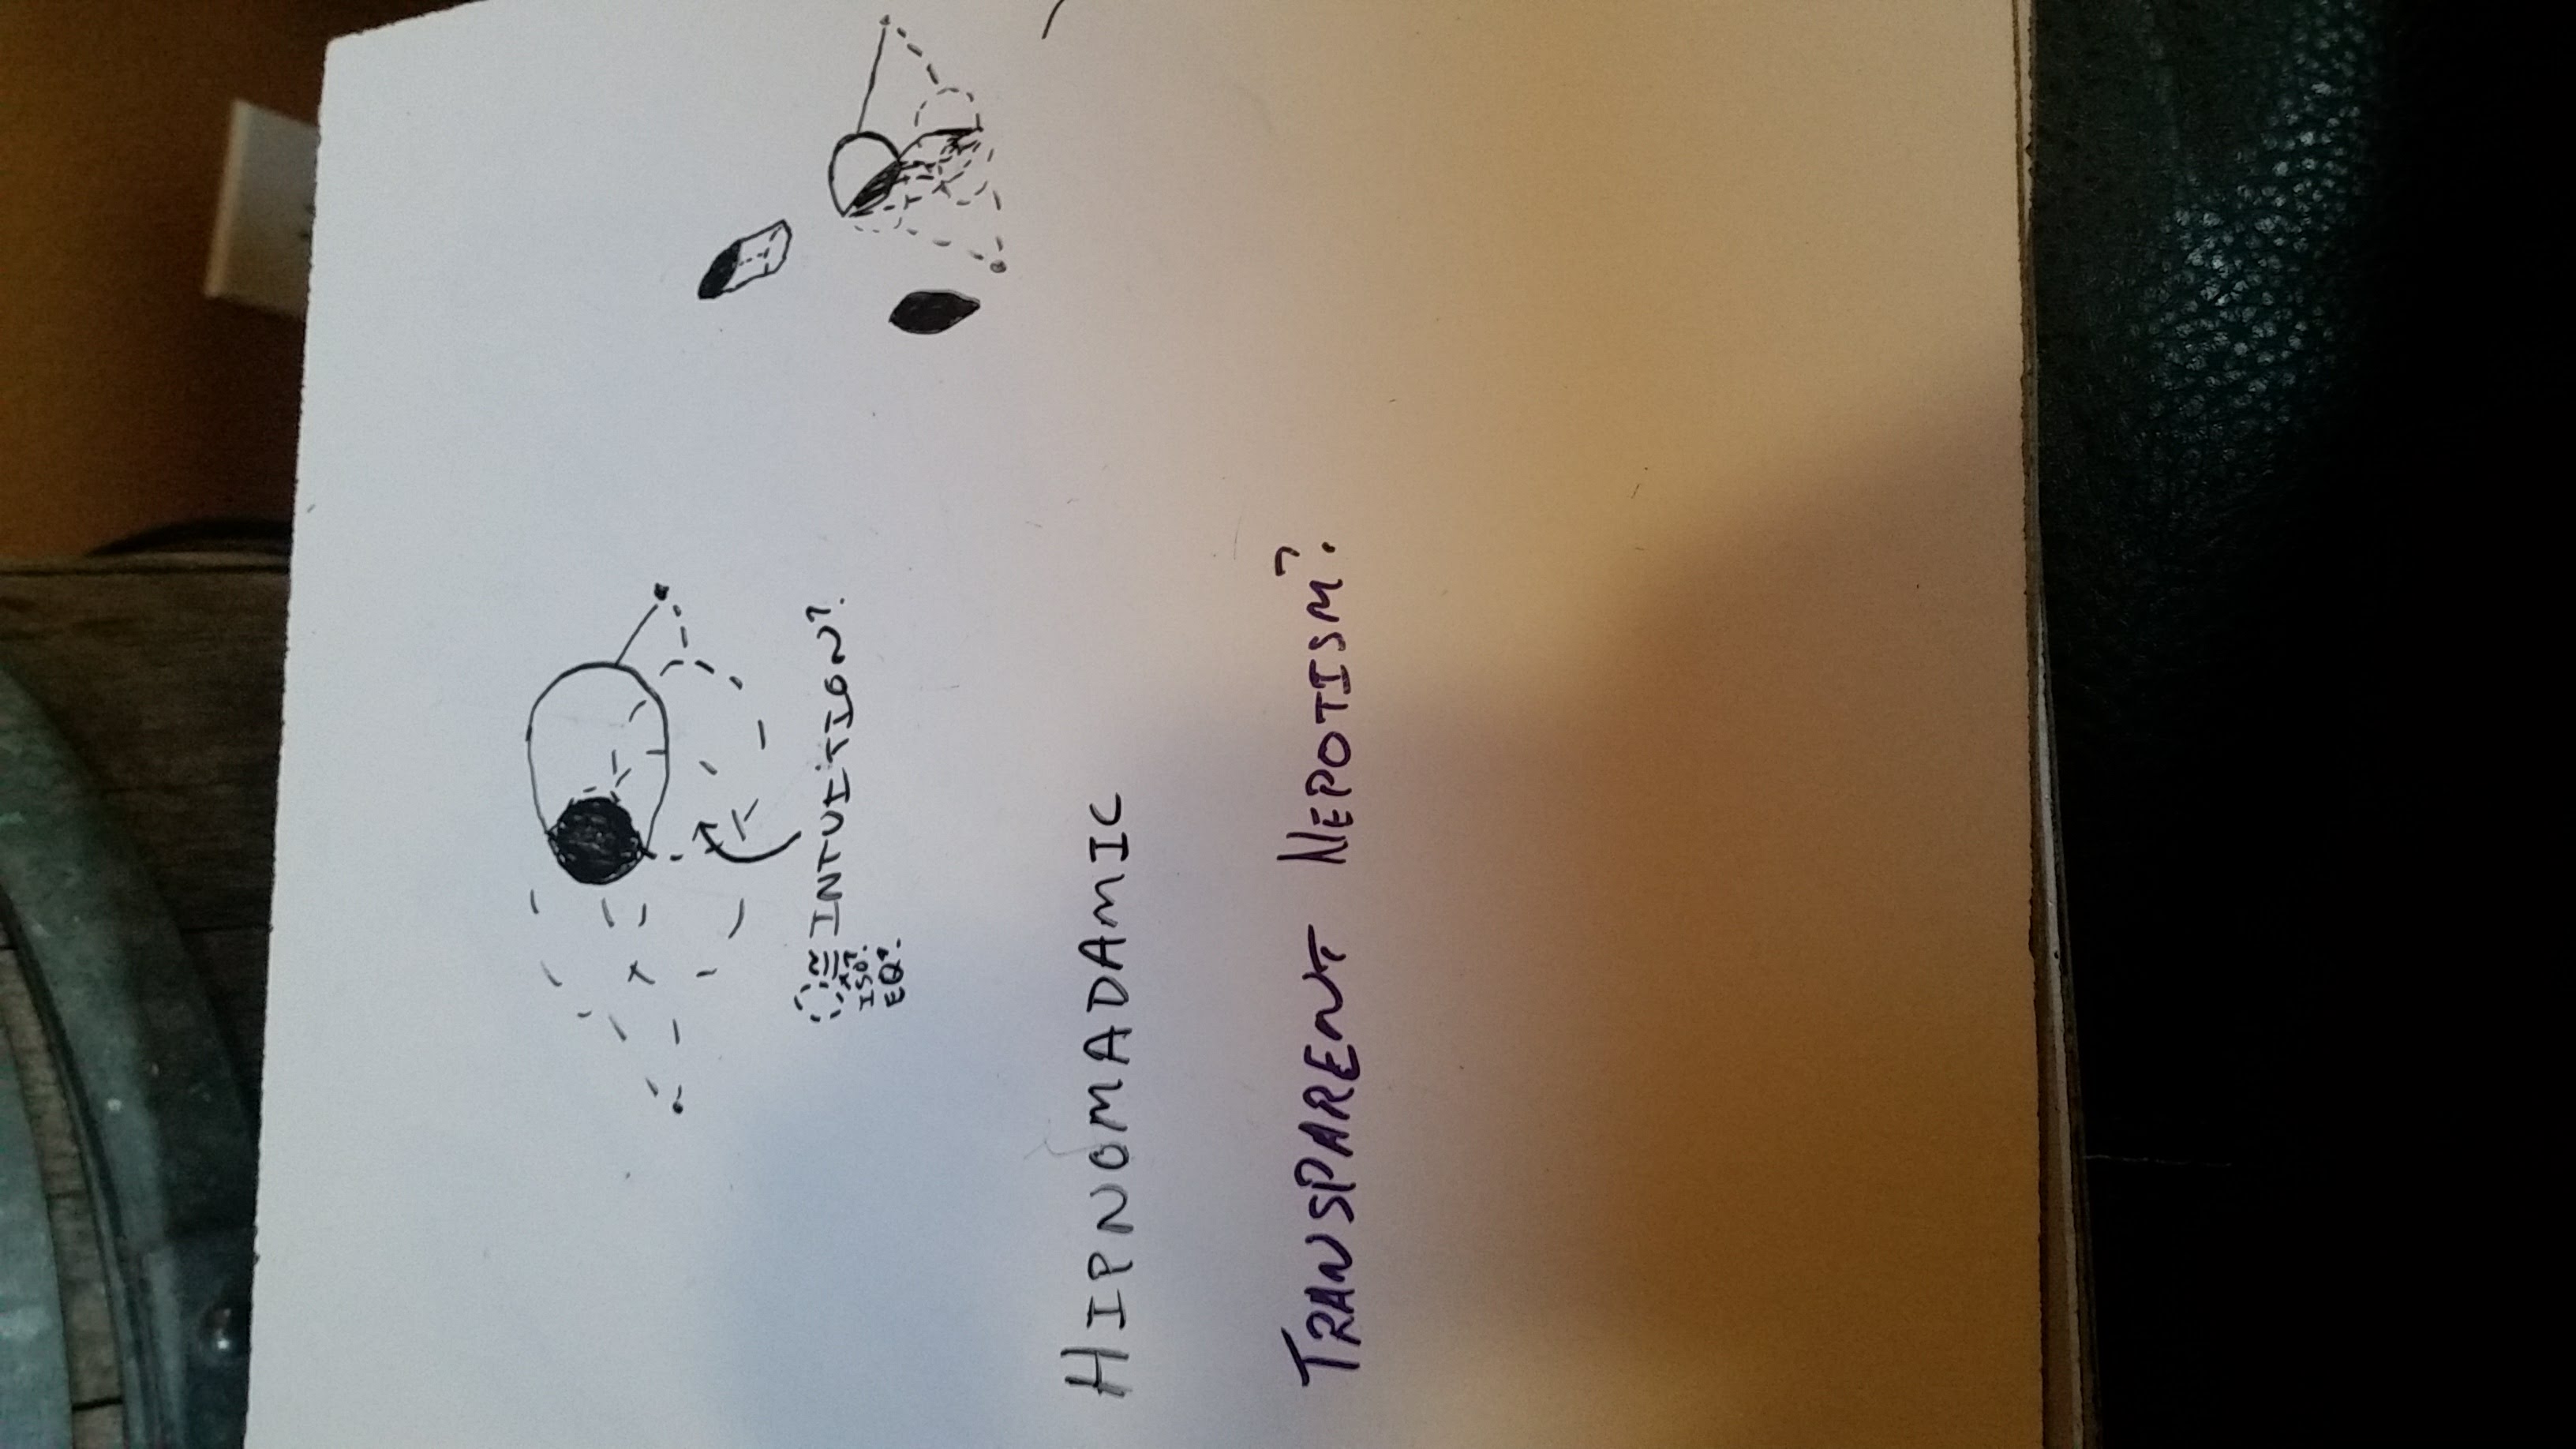 ≅ INTUITION?
ISO?
EQ?
HIPNOMADAMIC
TRANSPARENT NEPOTISM?